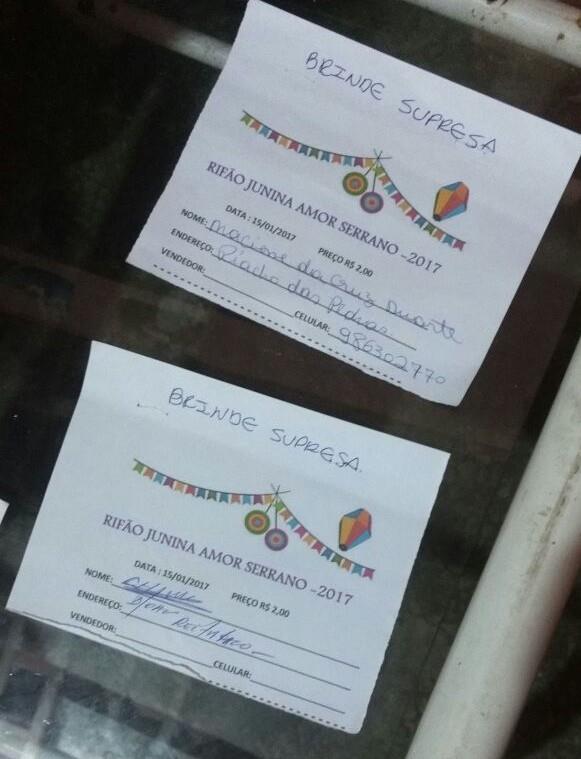 BRINDE SUPRESA
RIFÃO JUNINA AMOR SERRANO -2017
DATA : 15/01/2017 PREÇO R$ 2,00
NOME: da Cruz Duarte
ENDEREÇO: Riacho das Pedras
VENDEDOR: CELULAR: 986302770
BRINDE SUPRESA
RIFÃO JUNINA AMOR SERRANO -2017
DATA : 15/01/2017 PREÇO R$ 2,00
NOME:
ENDEREÇO:
VENDEDOR: CELULAR: